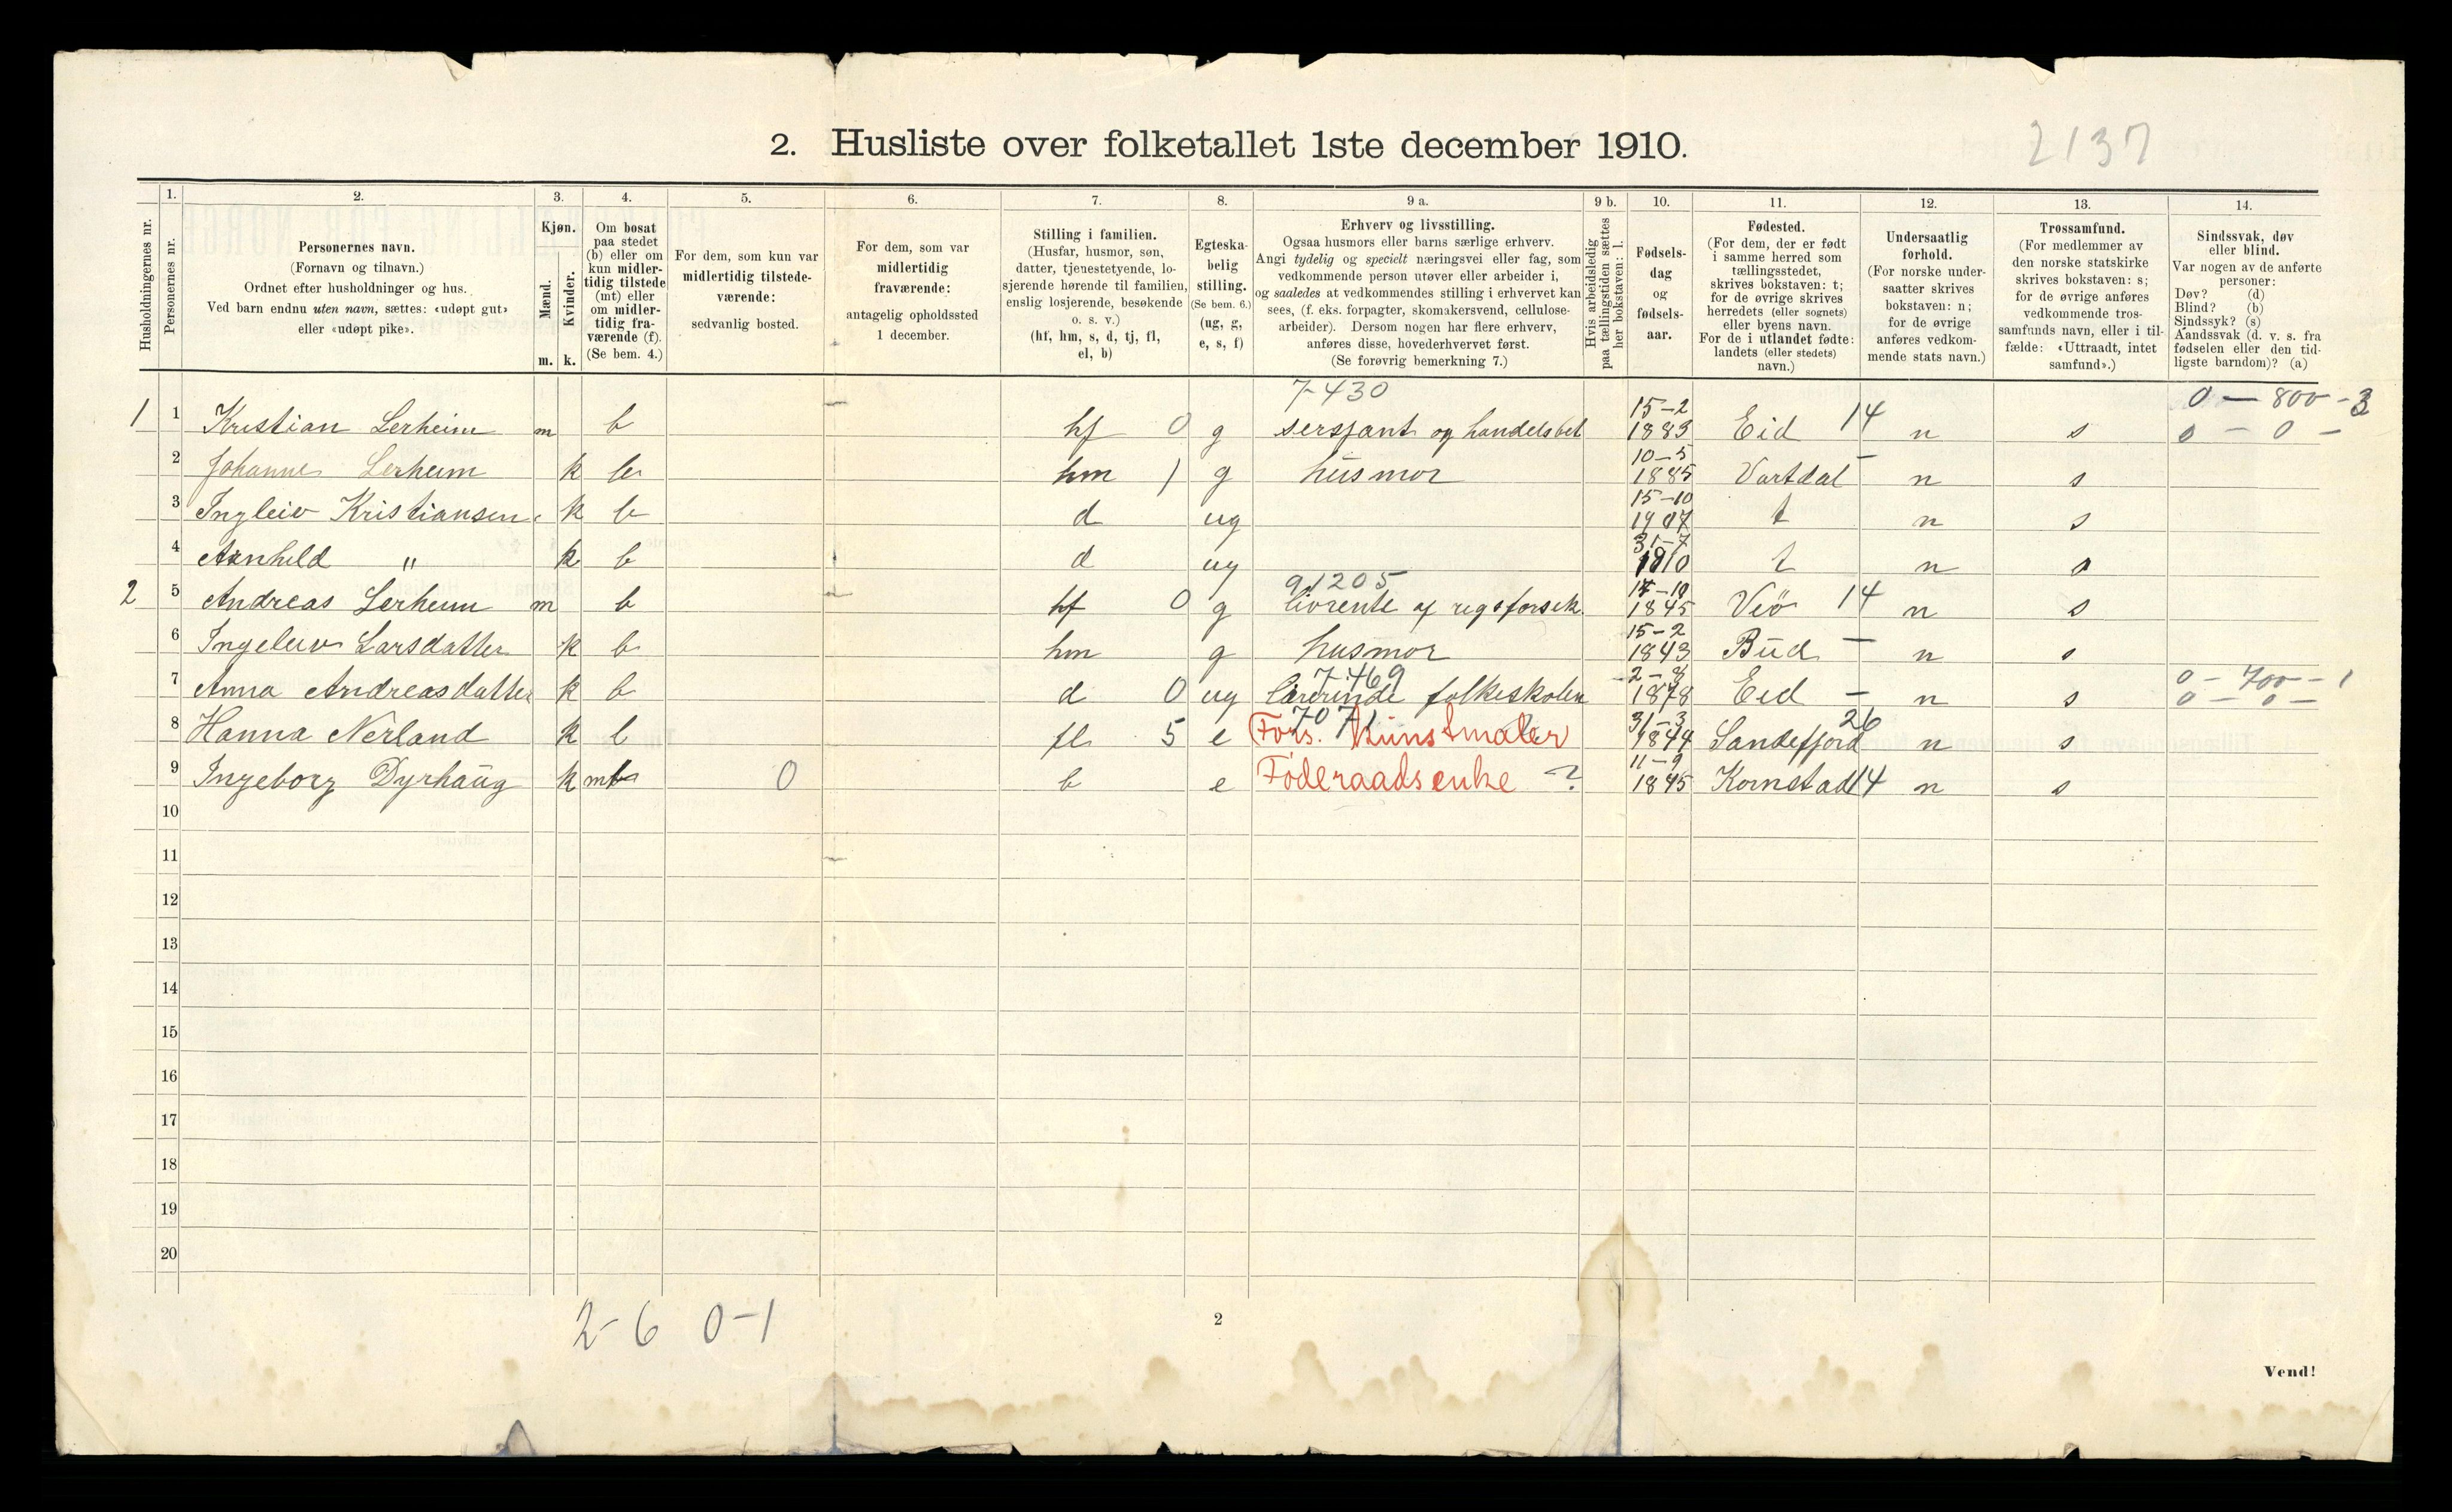 2137
2. Husliste over folketallet 1ste december 1910.
Husholdningernes nr.
1.
Personernes nr.
2.
Personernes navn.
(Fornavn og tilnavn.)
Ordnet efter husholdninger og hus.
Ved barn endnu uten navn, sættes: «udøpt gut»
eller «udøpt pike».
3.
Kjøn.
Mænd.
Kvinder.
m. k.
4.
Om bosat
paa stedet
(b) eller om
kun midler-
tidig tilstede
(mt) eller
om midler-
tidig fra-
værende (f).
(Se bem. 4.)
5.
For dem, som kun var
midlertidig tilstede-
værende:
sedvanlig bosted.
6.
For dem, som var
midlertidig
fraværende:
antagelig opholdssted
1 december.
7.
Stilling i familien.
(Husfar, husmor, søn,
datter, tjenestetyende, lo-
sjerende hørende til familien,
enslig losjerende, besøkende
o. s. v.)
(hf, hm, s, d, tj, fl,
el, b)
8.
Egteska-
belig
stilling.
(Se bem. 6.)
(ug, g,
e, s, f)
9 a.
Erhverv og livsstilling.
Ogsaa husmors eller barns særlige erhverv.
Angi tydelig og specielt næringsvei eller fag, som
vedkommende person utøver eller arbeider i,
og saaledes at vedkommendes stilling i erhvervet kan
sees, (f. eks. forpagter, skomakersvend, cellulose-
arbeider). Dersom nogen har flere erhverv,
anføres disse, hovederhvervet først.
(Se forøvrig bemerkning 7.)
9 b.
Hvis arbeidsledig
paa tællingstiden sættes
her bokstaven: l.
10.
Fødsels-
dag
og
fødsels-
aar.
11.
Fødested.
(For dem, der er født
i samme herred som
tællingsstedet,
skrives bokstaven: t;
for de øvrige skrives
herredets (eller sognets)
eller byens navn.
For de i utlandet fødte:
landets (eller stedets)
navn.)
12.
Undersaatlig
forhold.
(For norske under-
saatter skrives
bokstaven: n;
for de øvrige
anføres vedkom-
mende stats navn.)
13.
Trossamfund.
(For medlemmer av
den norske statskirke
skrives bokstaven: s;
for de øvrige anføres
vedkommende tros-
samfunds navn, eller i til-
fælde: «Uttraadt, intet
samfund».)
14.
Sindssvak, døv
eller blind.
Var nogen av de anførte
personer:
Døv? (d)
Blind? (b)
Sindssyk? (s)
Aandssvak (d. v. s. fra
fødselen eller den tid-
ligste barndom)? (a)
7-430 15-2 0 — 800 - 3
1 1 Kristian Lerheim m b hf 0 g sersjant og handelsbet 1883 Eid 14 n s 0 - 0 -
10-5
2 Johanne Lerheim k b hm 1 g husmor 1885 Vartdal - n s
15-10
3 Ingleiv Kristiansen. k b d ug 1907 t n s
31-7
4 Arnhild " k b d ug 1910 t n s
91205 17-10
2 5 Andreas Lerheim m b hf 0 g livrente af rigsforsik. 1845 Veö 14 n s
15-2
6 Ingeleiv Larsdatter k b hm g husmor 1843 Bud - n s
7-469 2-8 0 - 700 - 1
7 Anna Andreasdatter k b d 0 ug lærerinde folkeskolen 1878 Eid - n s 0 - 0 -
7071 31-3 26
8 Hanna Nerland k b fl 5 e Fors. Kunstmaler 1844 Sandefjord n s
11-9
9 Ingeborg Dyrhaug k mt 0 b e Föderaadsenke ? 1845 Kornstad 14 n s
10
11
12
13
14
15
16
17
18
19
20
2-6 0-1
2
Vend!